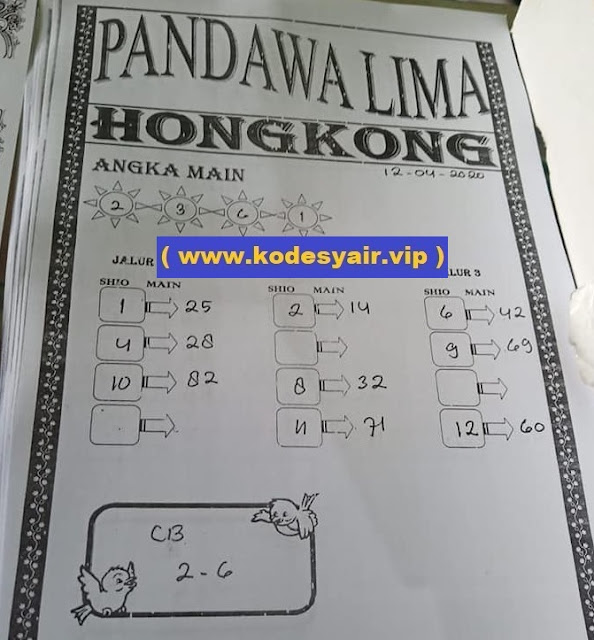 PANDAWA LIMA
HONGKONG
ANGKA MAIN
12-04-2020
2 3 6 1
( www.kodesyair.vip )
JALUR LUR 3
SHIO MAIN SHIO MAIN SHIO MAIN
1 25 2 14 6 42
4 28 9 69
10 82 8 32
11 71 12 60
CB
2-6